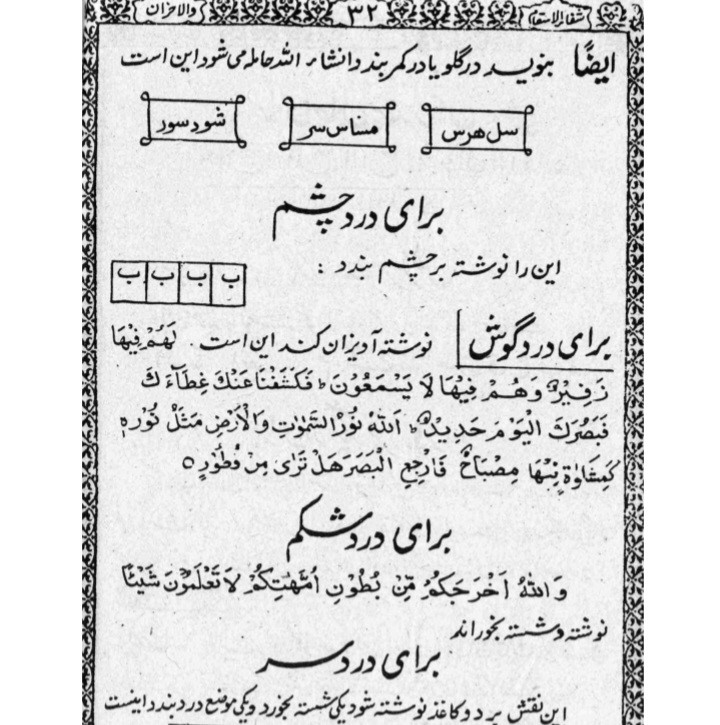 شفاء الاسقام ۳۲ والاحزان
ایضًا بنوید در گلو یا در کمر بندد انشاء اللہ حاملہ می شود این است
سل هرس مساس سر شود سور
برای درد چشم
این را نوشتہ بر چشم بندد :
ب ب ب ب
برای درد گوش نوشتہ آویزان کند این است . لَهُمْ فِيْهَا
زَفِيْرٌ وَهُمْ فِيْهَا لَا يَسْمَعُوْنَ فَكَشَفْنَا عَنْكَ غِطَآءَكَ
فَبَصَرُكَ الْيَوْمَ حَدِيْدٌ اَللّٰهُ نُوْرُ السَّمٰوٰتِ وَالْاَرْضِ مَثَلُ نُوْرِهٖ
كَمِشْكٰوةٍ فِيْهَا مِصْبَاحٌ فَارْجِعِ الْبَصَرَ هَلْ تَرٰى مِنْ فُطُوْرٍ ٥
برای درد شکم
وَاللّٰهُ اَخْرَجَكُمْ مِّنْ بُطُوْنِ اُمَّهٰتِكُمْ لَا تَعْلَمُوْنَ شَيْئًا
نوشتہ و شستہ بخوراند
برای درد سر
این نقش بر دو کاغذ نوشتہ شود یکی شستہ بخورد و یکی موضع درد بندد اینست